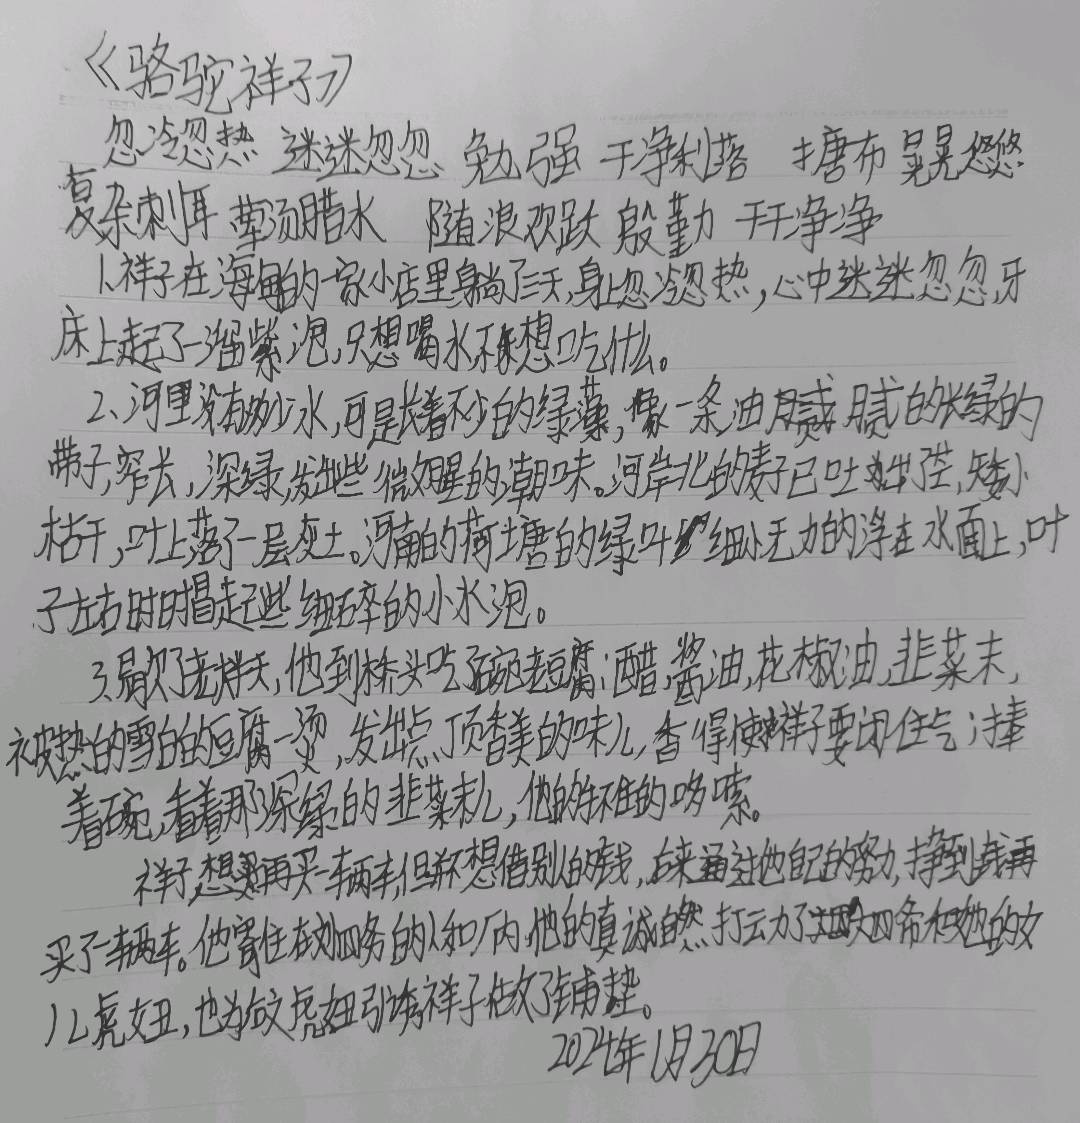 《骆驼祥子》
忽冷忽热 迷迷忽忽 勉强 干净利落 搪布 晃晃悠悠
复杂刺耳 荤汤腊水 随浪欢跃 殷勤 干干净净
1.祥子在海甸的一家小店里躺了三天,身上忽冷忽热,心中迷迷忽忽,牙
床上起了一溜紫泡,只想喝水,不想吃什么。
2、河里没有多少水,可是长着不少的绿藻,像一条油腻腻的长绿的
带子,窄长,深绿,发出些微腥的潮味。河岸北的麦子已吐出了芒,矮小
枯干,叶上落了一层灰土。河南的荷塘的绿叶细小无力的浮在水面上,叶
子左右时时冒起些细碎的小水泡。
3、歇了老半天,他到桥头吃了碗老豆腐:醋,酱油,花椒油,韭菜末,
被热的雪白的豆腐一烫,发出点顶香美的味儿,香得使祥子要闭住气;捧
着碗,看着那深绿的韭菜末儿,他的手不住的哆嗦。
祥子想再买一辆车,但并不想借别人的钱,后来通过他自己的努力,挣到钱再
买了一辆车。他寄住在刘四爷的人和厂内,他的真诚自然打动了刘四爷和他的女
儿虎妞,也为后文虎妞引诱祥子做了铺垫。
2024年1月30日